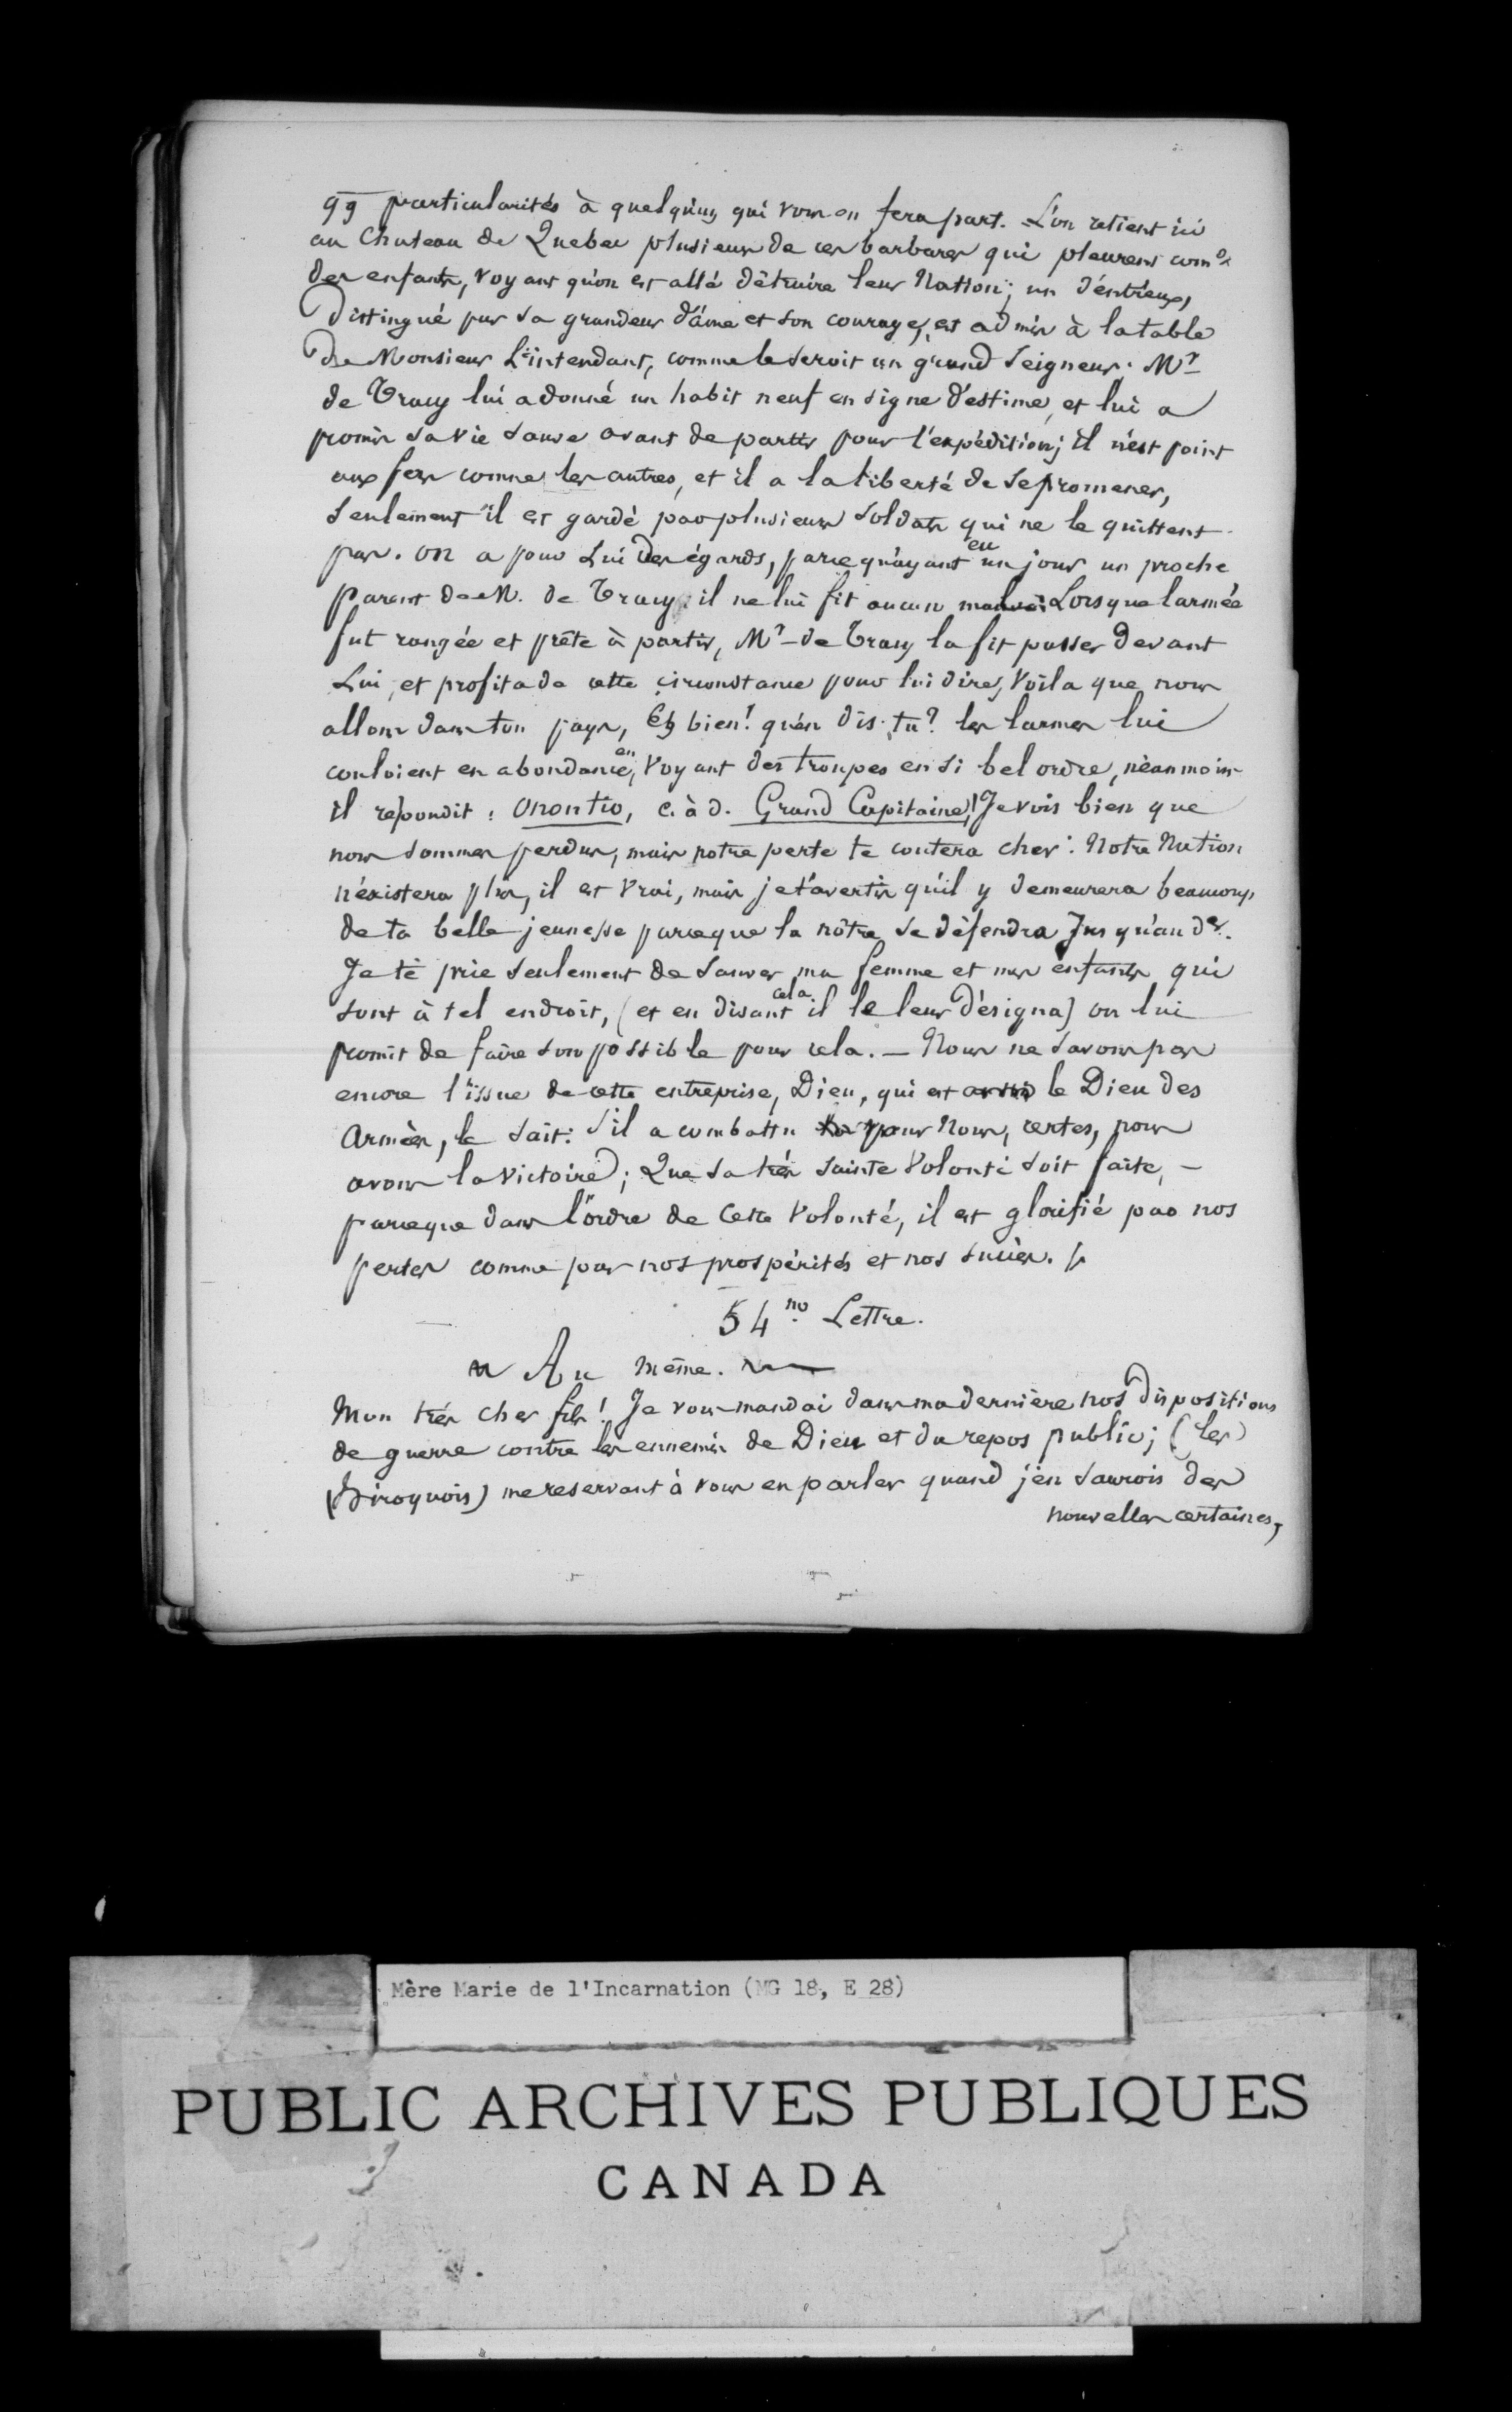 gg particularités à quelqu'un, qui vous en fera part. L'on retient ici
au Chateau de Quebec plusieurs de ces barbares qui pleurent com.e
des enfants, voyant qu'on est allé détruire leur Nation; un d'éntreux,
Distingué par sa grandeur d'âme et son courage, est admis à la table
De Monsieur L'intendant, comme le seroit un grand Seigneur. Mr
de Tracy lui a donné un habit neuf en signe d'estime, et lui a
promis sa vie sauve avant de partir pour l'expédition; il n'est point
aux fers comme les autres, et il a la liberté de se promener,
Seulement il est gardé par plusieurs soldats qui ne le quittent
pas. on a pour Lui des égards, parcequ'ayant eu un jour un proche
parent de M. de Tracy, il ne lui fit aucun mal. Lorsque larmée
fut rangée et prête à partir, Mr de Tracy la fit passer devant
Lui, et profita de cette circonstance pour lui dire, Voila que nous
allons dans ton pays, Eh bien! qu'en dis-tu? les larmes lui
couloient en abondance, en voyant des troupes en si bel ordre, néanmoins
il répondit: Onontio, c. à d. Grand Capitaine! Je vois bien que
nous sommes perdus, mais notre perte te coutera cher. Notre Nation
n'éxistera plus, il est vrai, mais je t'avertis qu'il y demeurera beaucoup
de ta belle jeunesse parceque la nôtre se défendra Jusqu'au der.
Je te prie seulement de sauver ma femme et mes enfants qui
sont à tel endroit, (et en disant cela il le leur désigna) on lui
promit de faire son possible pour cela. — Nous ne savons pas
encore l'issue de cette entreprise, Dieu, qui est le Dieu des
Armées, le sait: S'il a combattu pour Nous, certes, nous
avons la victoire; Que sa très sainte Volonté soit faite, -
parceque dans l'ordre de Cette Volonté, il est glorifié par nos
pertes comme par nos prospérités et nos succès.
54.no Lettre.
Au même.
Mon très cher fils! Je vous mandai dans ma dernière nos dispositions
de guerre contre les ennemis de Dieu et du repos public; (les
Hiroquois) me reservant à vous en parler quand j'en saurois des
nouvelles certaines,
Mère Marie de l'Incarnation (MG 18, E 28)
PUBLIC ARCHIVES PUBLIQUES
CANADA